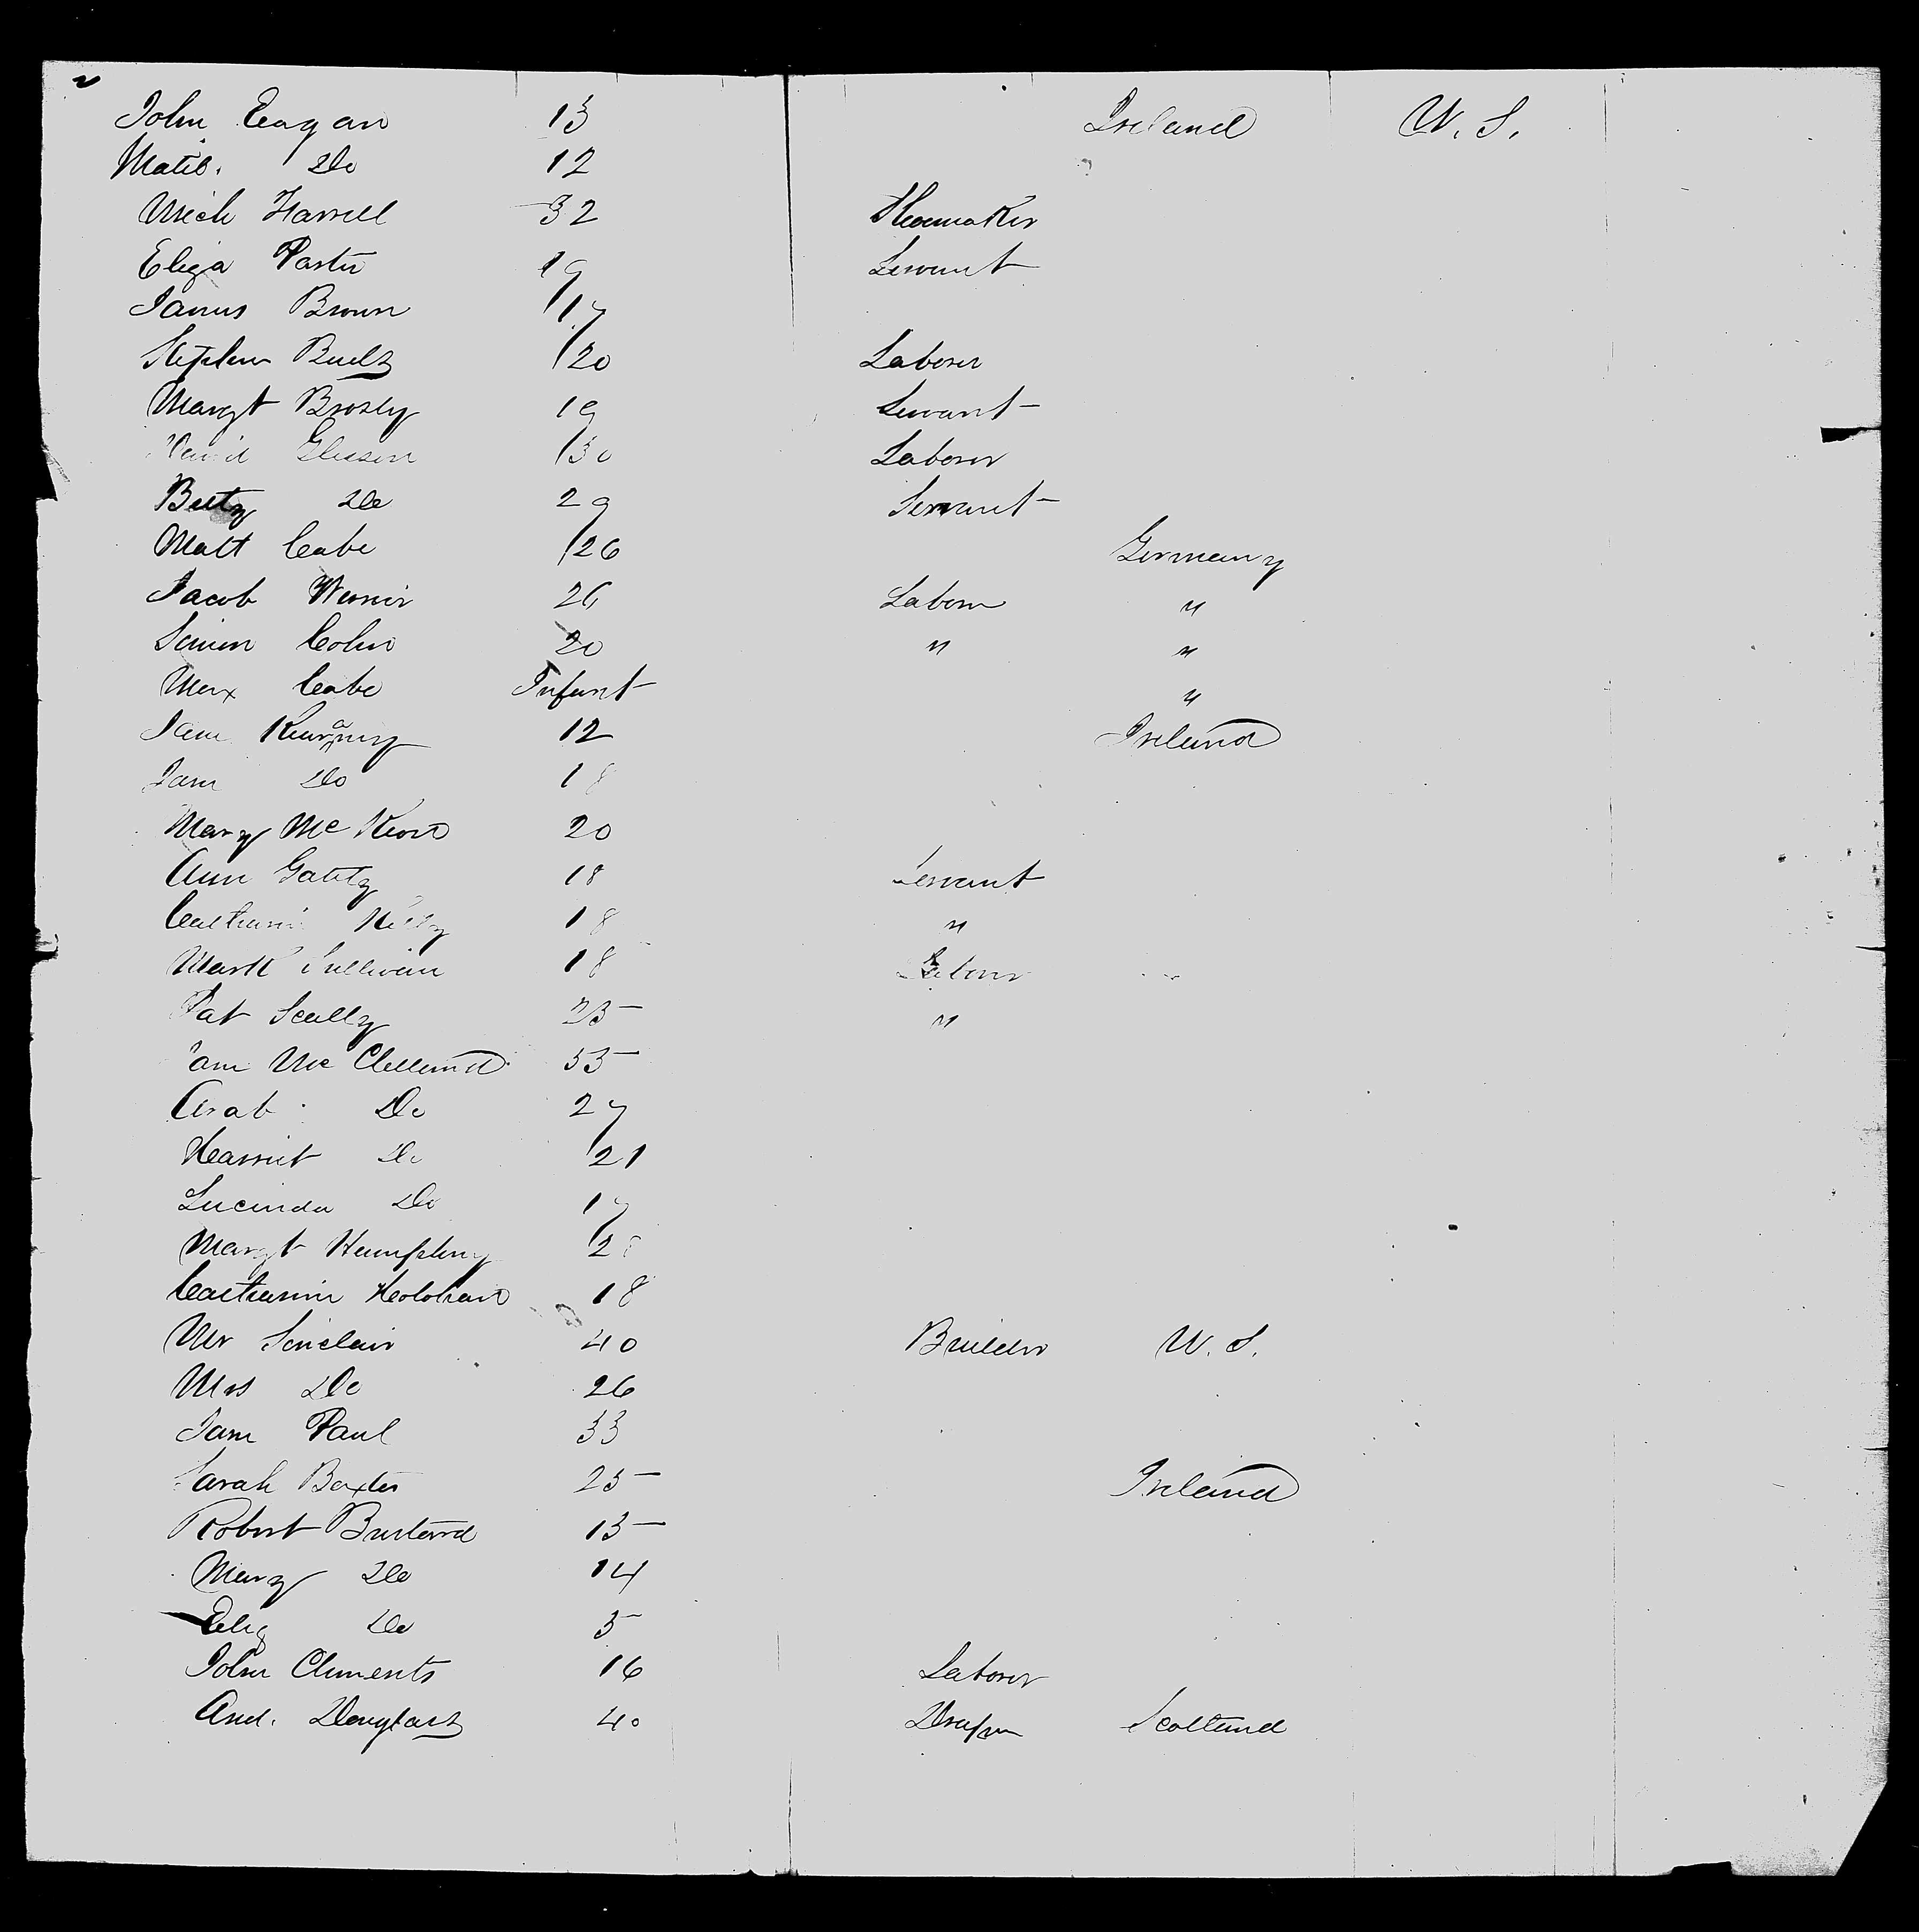 John Eagan 13 Ireland U. S.
Matil. Do 12
Mich Farrell 32 Shoemaker
Eliza Porter 19 Servant
James Brown 17
Stephen 20 Laborer
Margt Brosly 19 Servant
David Gleeson 30 Laborer
Do 29 Servant
Matt Cabe 26 Germany
Jacob Werner 26 Laborer "
Simon Cohn 20 " "
Max Cabe Infant "
Jane 12 Ireland
Jam Do 18
Mary Mc 20
Ann 18 Servant
Catharine Kelly 18 "
Mark Sullivan 18 Laborer
Pat Scully 25 "
Mc Clelland 55
Do 27
Harriet Do 21
Lucinda Do 17
Margt Humphry 28
Catharine Holohan 18
Mr Sinclair 40 Builder U. S.
Mrs Do 26
Jam Paul 33
Sarah Baxter 25 Ireland
Robert Bustard 15
Mary Do 14
Eliz Do 5
John Clements 16 Laborer
And. Douglass 40 Draper Scotland